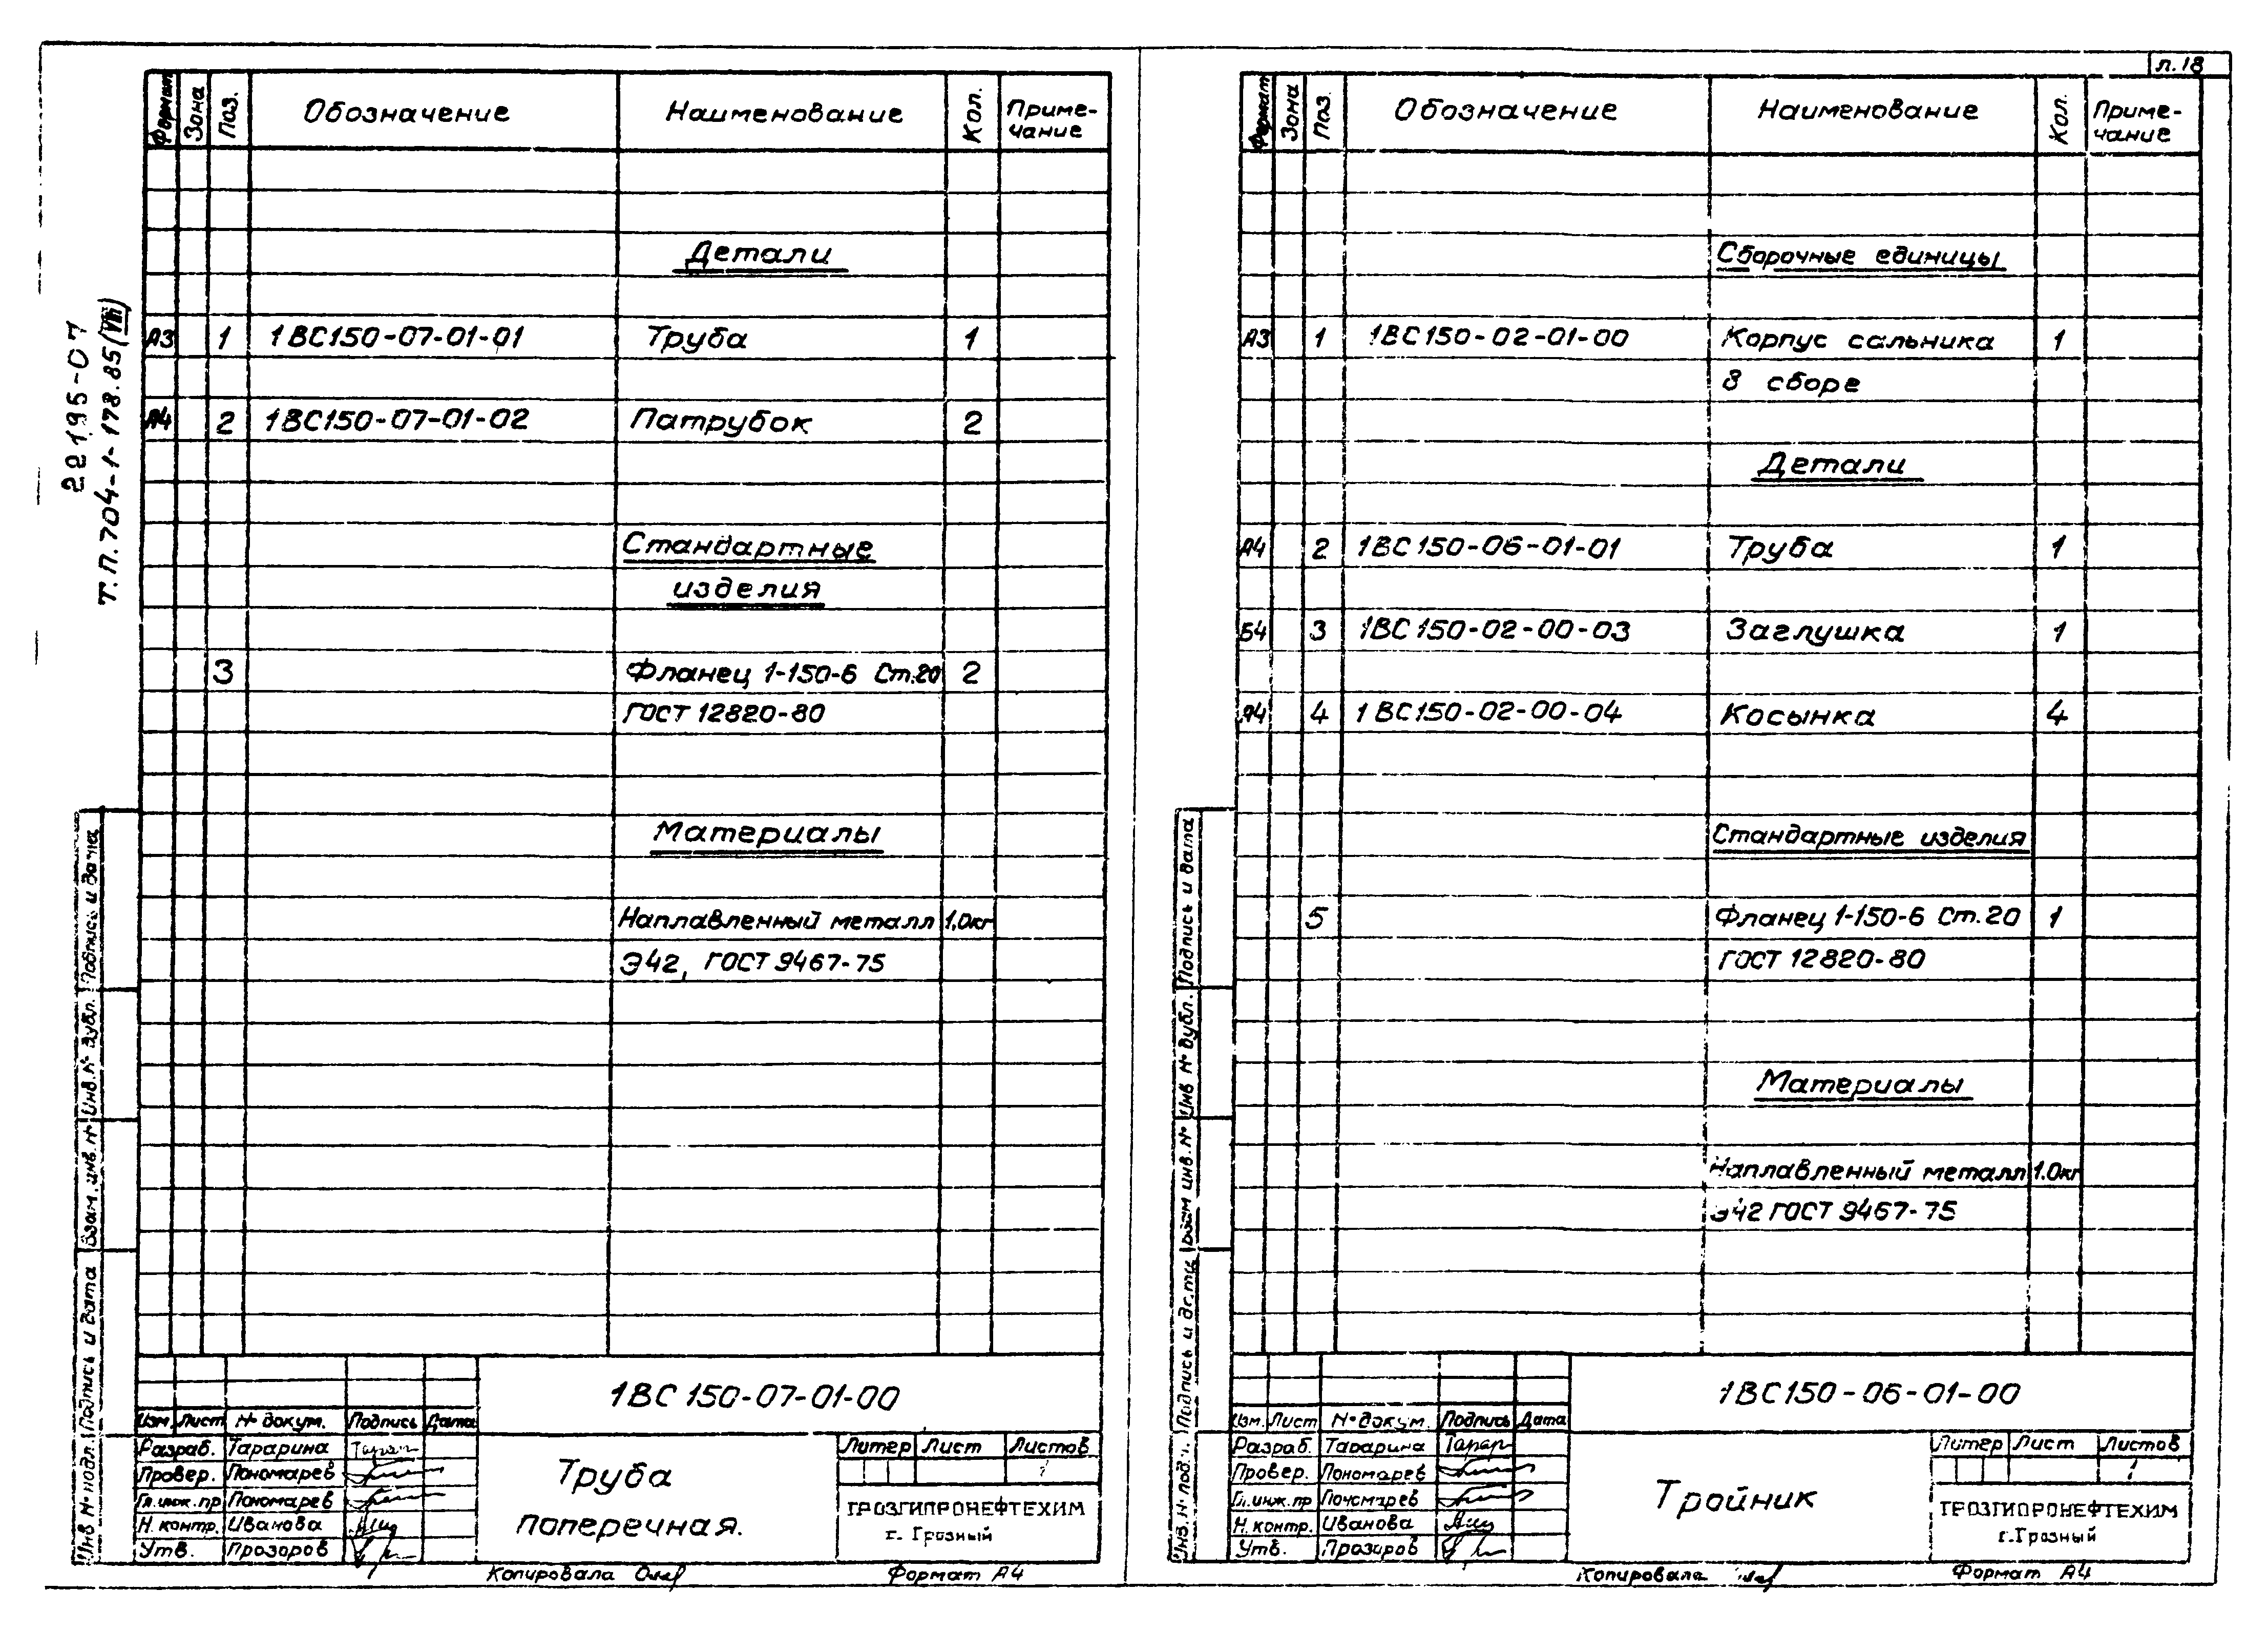 л.18
22195-07
Т.П.704-1-178.85(VII)
Формат Зона Поз. Обозначение Наименование Кол. Приме-
чание
Детали
А3 1 1ВС150-07-01-01 Труба 1
А4 2 1ВС150-07-01-02 Патрубок 2
Стандартные
изделия
3 Фланец 1-150-6 Ст.20 2
ГОСТ 12820-80
Материалы
Наплавленный металл 1,0кг
Э42, ГОСТ 9467-75
Инв № подл. Подпись и дата Взам. инв. № Инв. № дубл. Подпись и дата
1ВС150-07-01-00
Изм. Лист № докум. Подпись Дата
Разраб. Тарарина Тарар
Провер. Пономарев
Гл. инж. пр Пономарев
Н. контр. Иванова
Утв. Прозоров
Труба
поперечная.
Литер Лист Листов
ГРОЗГИПРОНЕФТЕХИМ
г. Грозный
Копировала Формат А4
Формат Зона Поз. Обозначение Наименование Кол. Приме-
чание
Сборочные единицы
А3 1 1ВС150-02-01-00 Корпус сальника 1
в сборе
Детали
А4 2 1ВС150-06-01-01 Труба 1
Б4 3 1ВС150-02-00-03 Заглушка 1
А4 4 1ВС150-02-00-04 Косынка 4
Стандартные изделия
5 Фланец 1-150-6 Ст.20 1
ГОСТ 12820-80
Материалы
Наплавленный металл 1.0кг
Э42 ГОСТ 9467-75
Инв. № подл. Подпись и дата взам инв. № Инв № дубл. Подпись и дата
1ВС150-06-01-00
Изм. Лист № докум. Подпись Дата
Разраб. Тарарина Тарар
Провер. Пономарев
Гл. инж. пр Пономарев
Н. контр. Иванова
Утв. Прозоров
Тройник
Литер Лист Листов
1
ГРОЗГИПРОНЕФТЕХИМ
г. Грозный
Копировала Формат А4